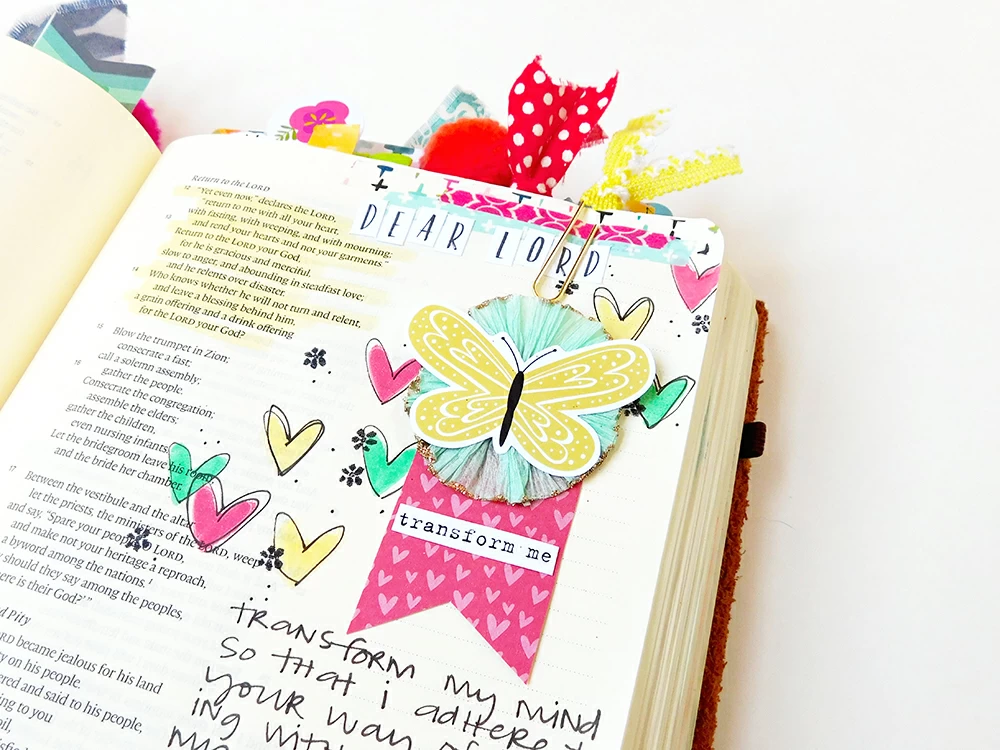 Return to the LORD
12 "Yet even now," declares the LORD,
"return to me with all your heart,
with fasting, with weeping, and with mourning;
13 and rend your hearts and not your garments."
Return to the LORD your God,
for he is gracious and merciful,
slow to anger, and abounding in steadfast love;
and he relents over disaster.
14 Who knows whether he will not turn and relent,
and leave a blessing behind him,
a grain offering and a drink offering
for the LORD your God?
15 Blow the trumpet in Zion;
consecrate a fast;
call a solemn assembly;
16 gather the people.
Consecrate the congregation;
assemble the elders;
gather the children,
even nursing infants.
Let the bridegroom leave his room,
and the bride her chamber.
17 Between the vestibule and the altar
let the priests, the ministers of the LORD, weep
and say, "Spare your people, O LORD,
and make not your heritage a reproach,
a byword among the nations.
should they say among the peoples,
ere is their God?'"
d Pity
LORD became jealous for his land
y on his people.
ered and said to his people,
ing to you
oil,
DEAR LORD
transform me
TRANSFORM my mind
so that i adhere t
your way of
ing with